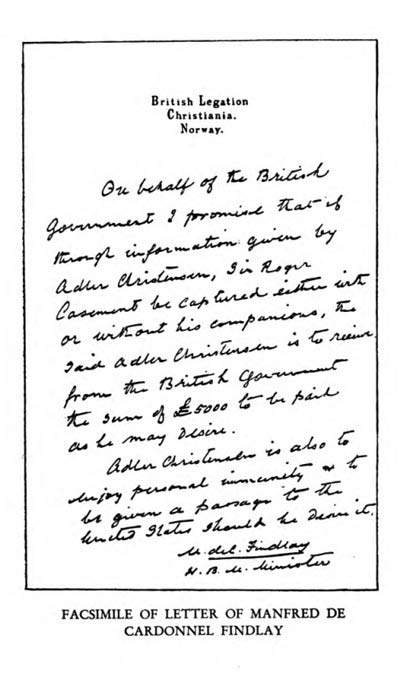 British Legation
Christiania.
Norway.
On behalf of the British
Government I promise that if
through information given by
Adler Christensen, Sir Roger
Casement be captured either with
or without his companions, the
said Adler Christensen is to receive
from the British Government
the sum of £5000 to be paid
as he may desire.
Adler Christensen is also to
enjoy personal immunity & to
be given a passage to the
United States should he desire it.
M. de C. Findlay
H. B. M. Minister
FACSIMILE OF LETTER OF MANFRED DE
CARDONNEL FINDLAY